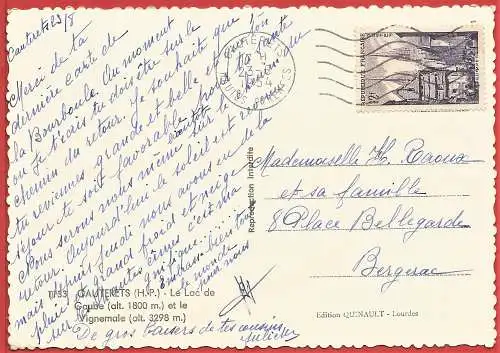 Cauterets 23/8
Merci de ta
dernière carte de
la Bourboule. Au moment
où je t'écris tu dois être sur le
chemin du retour. Je souhaite que ton
tu reviennes grande et belle et que ton
séjour te soit favorable pour
Nous serons nous même sur le
retour. Aujourd'hui le soleil est revenu
mais jeudi nous avons eu de la
pluie grand froid et neige
sur les hautes cimes c'était
magnifique
Embrasse bien tout
le monde
pour nous
De gros baisers de tes cousins
CAUTERETS
HTES PYRENEES
REPUBLIQUE FRANÇAISE
Mademoiselle H. Raoux
et sa famille
8 Place Bellegarde
Bergerac
Reproduction Interdite
CAUTERETS (H.-P.) - Le Lac de
Gaube (alt. 1800 m.) et le
Vignemale (alt. 3298 m.)
Edition QUINAULT - Lourdes